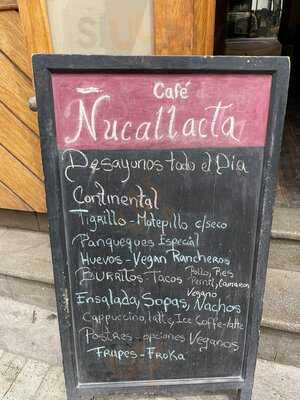 Café
Ñucallacta
Desayunos todo el Día
Continental
Tigrillo - Motepillo c/seco
Panqueques Especial
Huevos - Vegan Rancheros
Burritos - Tacos Pollo, Res
Pernil, Camaron
Vegano
Ensalada, Sopas, Nachos
Cappuccino, latte, Ice Coffe-latte
Postres - opciones Veganos
Frapes - Froka